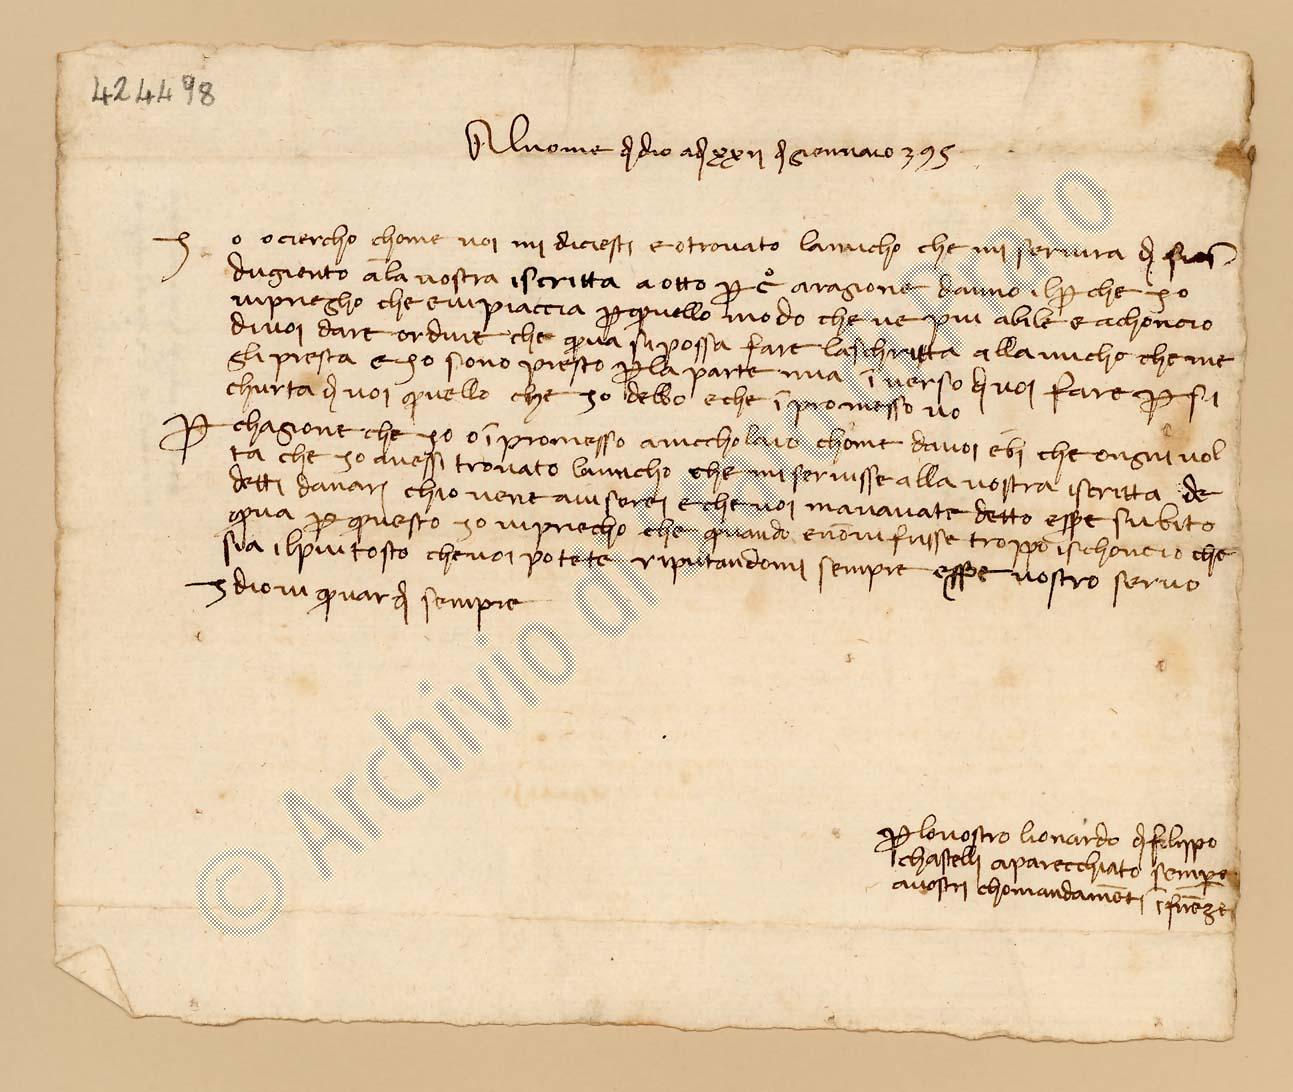 424498
Al nome di dio a dì xxii di giennaio 395
Io o cierchο chome voi mi diciesti e o trovato l'amicho che mi servirà di fior.
dugiento a la vostra iscritta a otto per co a ragione d'anno il perché io
vi priegho che e' vi piaccia per quello modo che v'è più abile e achoncio
di voi dare ordine che qua si possa fare la schritta all'amicho che me
gli presta e io sono presto per la parte mia in verso di voi fare per si
churtà di voi quello che io debbo e che in promesso vo
Per chagione che io ò inpromesso a Niccholaio chome da voi ebi che ongni vol
ta che io avessi trovato l'amicho che mi servisse alla vostra iscritta de
detti danari ch'io ve ne aviserei e che voi m'avavate detto essere subito
qua per questo io vi priecho che quando e' non vi fusse troppo ischoncio che
sia il più tosto che voi potete riputandomi sempre essere vostro servo
Idio vi quardi sempre
Per lo vostro Lionardo di Filippo
Chastelli aparecchiato sempre
a vostri chomandamenti in Firenze
© Archivio di Stato di Prato